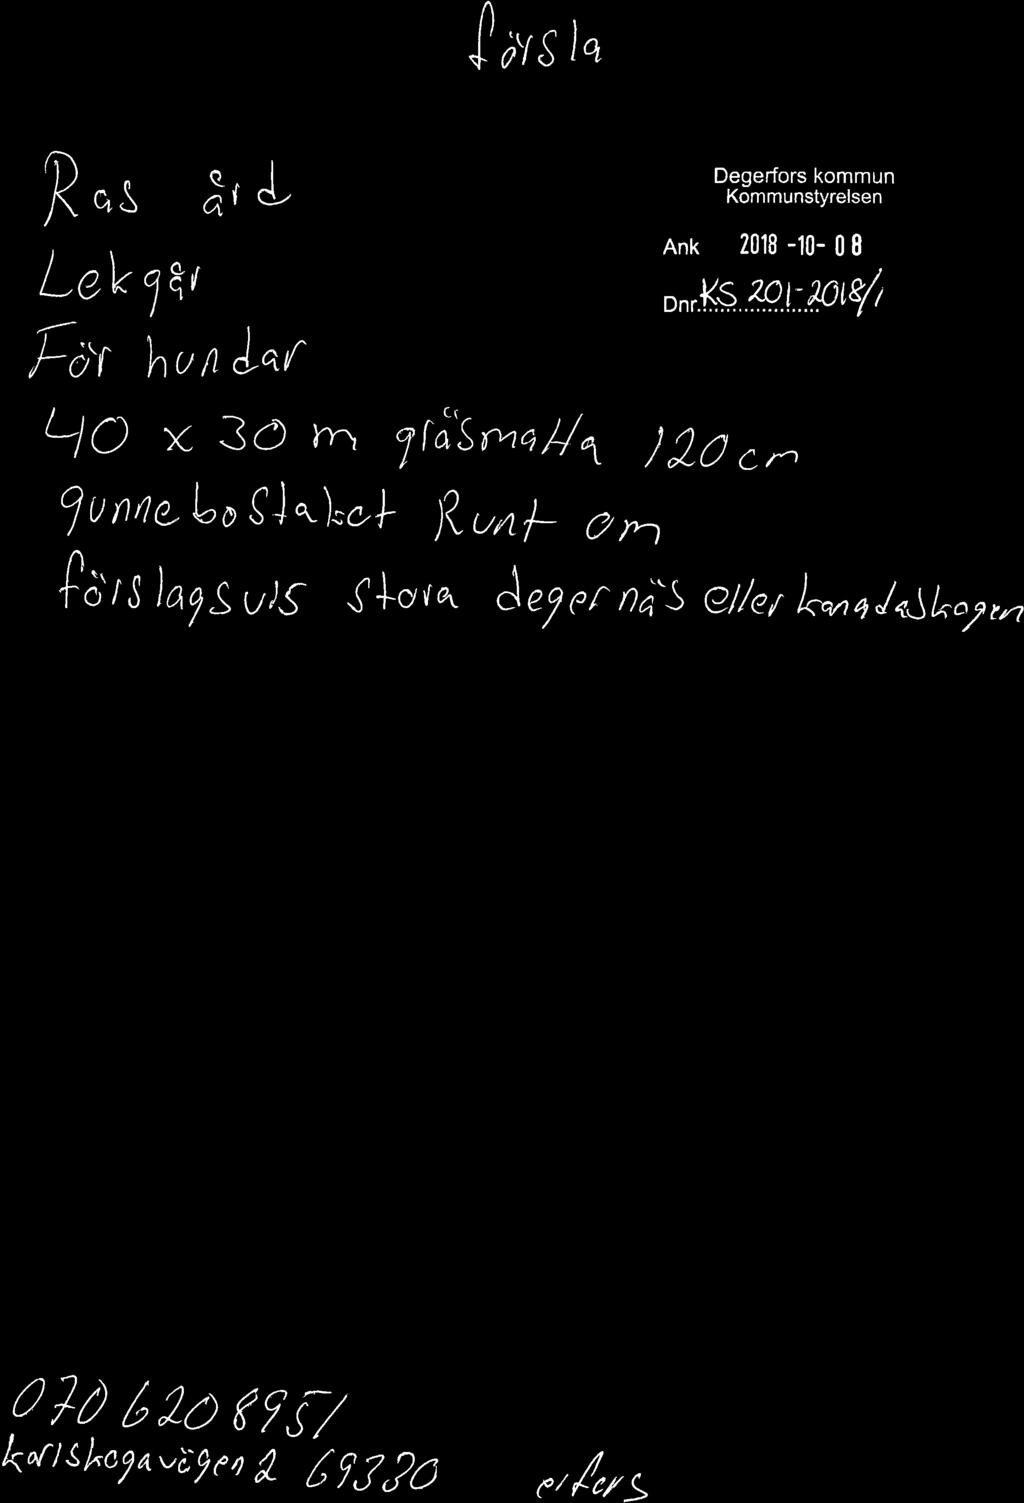 försla
Ras års
Degerfors kommun
Kommunstyrelsen
Ank 2018 -10- 08
Dnr. KS 201-2018/1
Lekgår
För hundar
40 x 30 m gräsmatta 120 cm
gunnebostaket Runt om
förslagsvis stora degernäs eller kanadaskogen
070 620 8951
karlskogavägen 2 69330